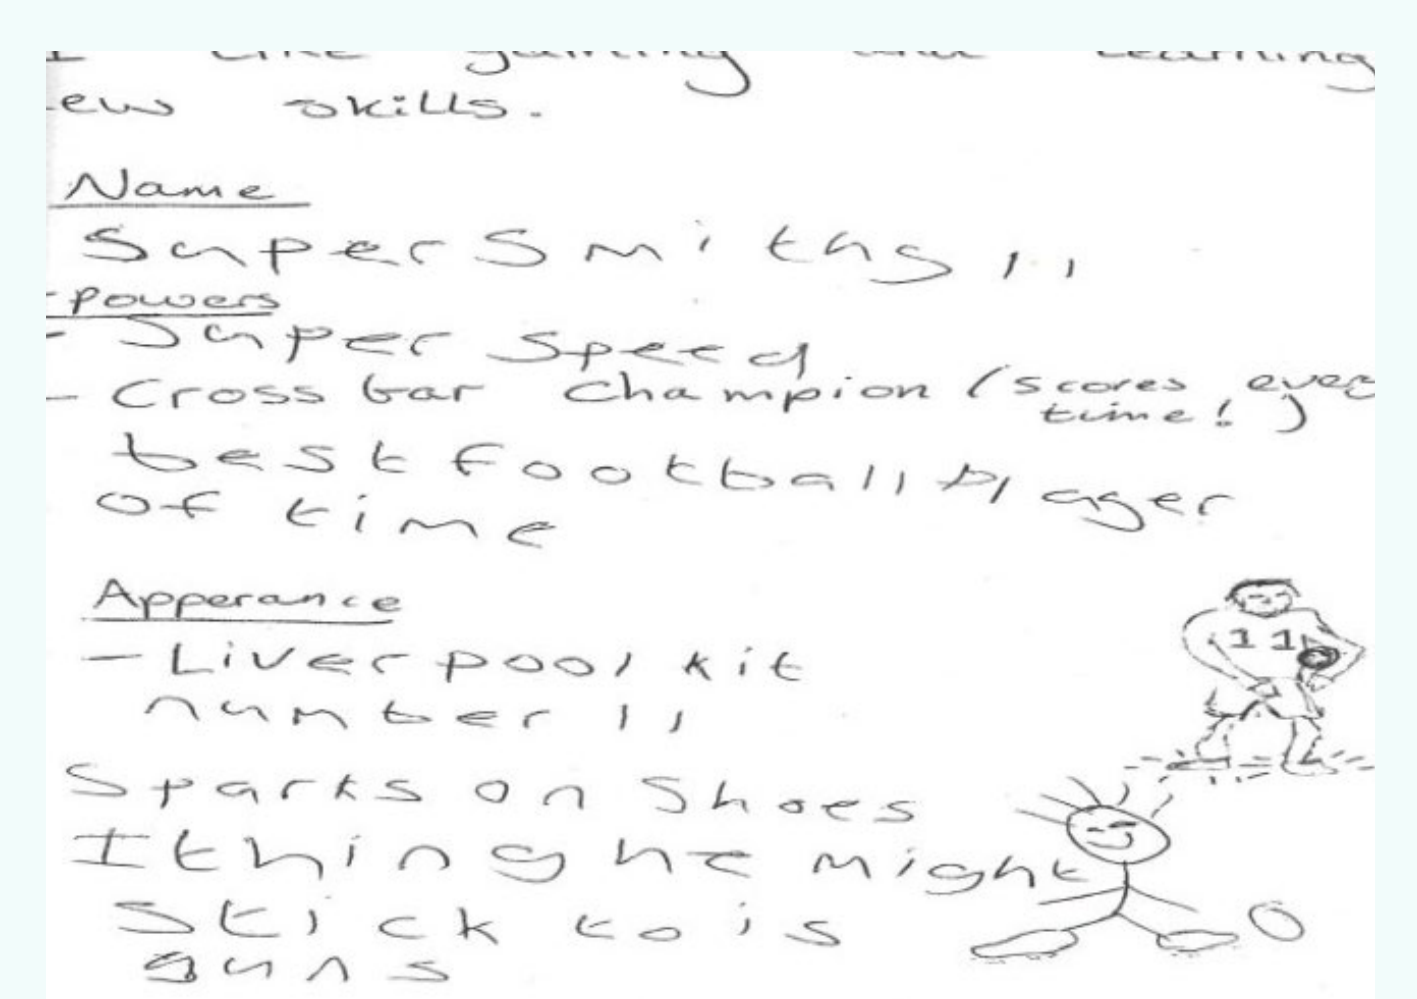 I like gaining and learning
ew skills.
Name
SuperSmithy 11
Powers
- Super Speed
- Cross bar Champion (scores every
time!)
best football player
of time
Apperance
- Liverpool kit
number 11
Sparks on Shoes
I thing he might
stick to is
guns
11